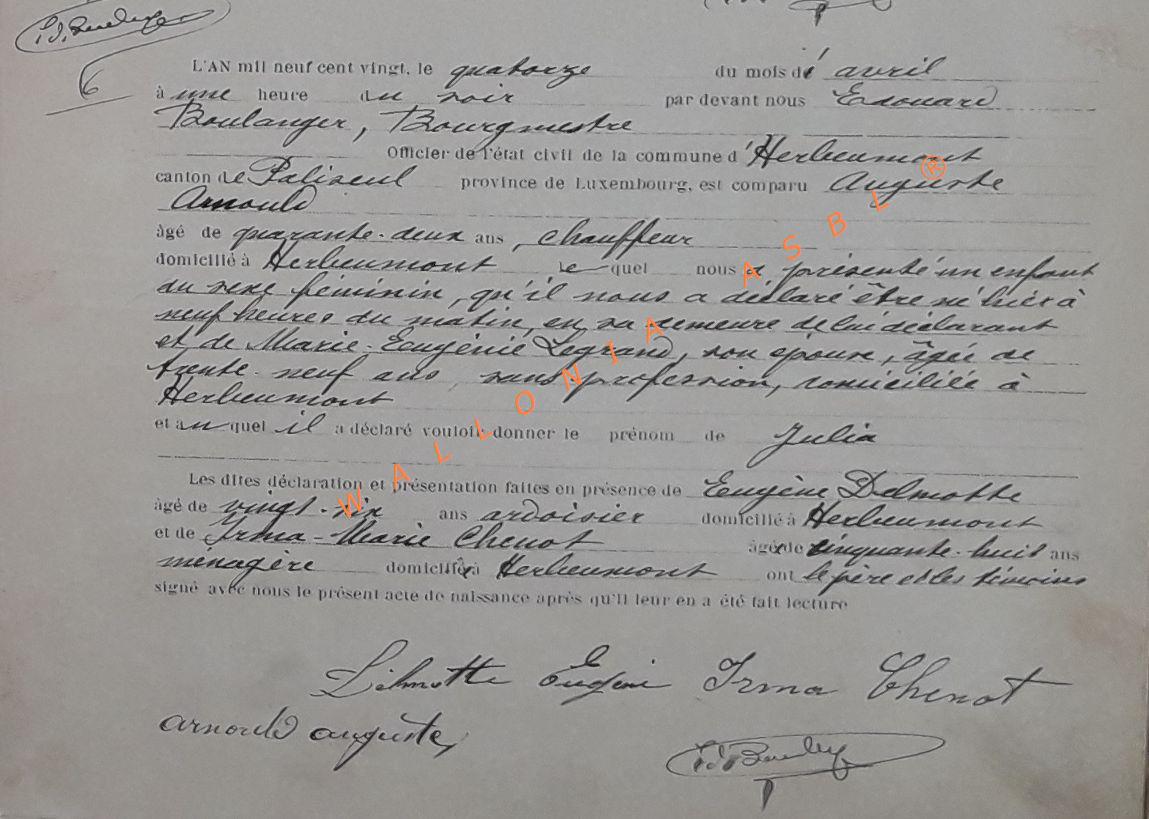 6
L'AN mil neuf cent vingt, le quatorze du mois d' avril
à une heure du soir par devant nous Edouard
Boulanger, Bourgmestre
Officier de l'état civil de la commune d'Herbeumont
canton de Paliseul province de Luxembourg, est comparu Auguste
Arnould
âgé de quarante-deux ans, chauffeur
domicilié à Herbeumont lequel nous a présenté un enfant
du sexe féminin, qu'il nous a déclaré être né hier à
neuf heures du matin, en sa demeure de lui déclarant
et de Marie-Eugénie Legrand, son épouse, âgée de
trente-neuf ans, sans profession, domiciliée à
Herbeumont
et auquel il a déclaré vouloir donner le prénom de Julia
Les dites déclaration et présentation faites en présence de Eugène Delmotte
âgé de vingt-six ans ardoisier domicilié à Herbeumont
et de Irma-Marie Chenot âgée de cinquante-huit ans
ménagère domiciliée à Herbeumont ont le père et les témoins
signé avec nous le présent acte de naissance après qu'il leur en a été fait lecture
Delmotte Eugène Irma Chenot
arnould auguste
WALLONIA ASBL ®